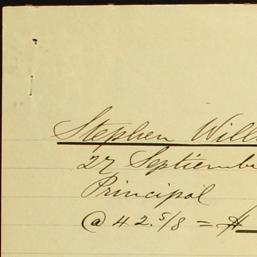 Stephen Will
27 Septiembr
Principal
@ 42.5/8 = $